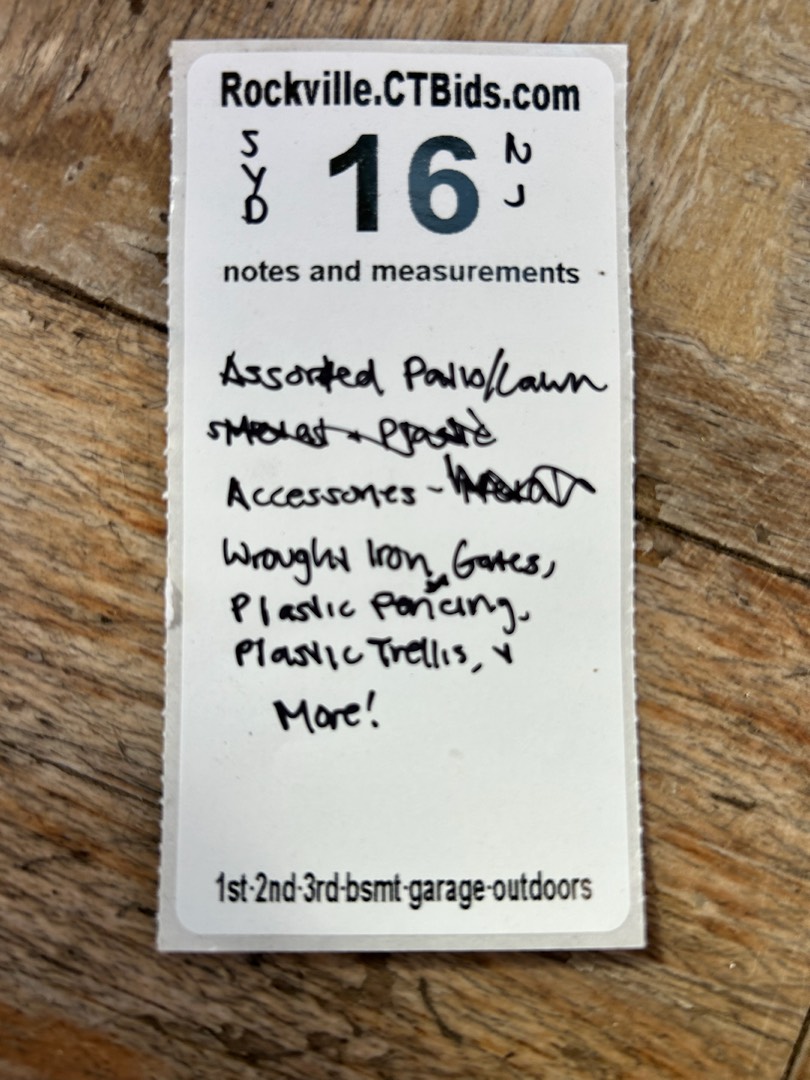 Rockville.CTBids.com
SYD 16 NJ
notes and measurements
Assorted Patio/Lawn
Accessories -
Wrought Iron Gates,
Plastic Fencing,
Plastic Trellis, &
More!
1st-2nd-3rd-bsmt-garage-outdoors